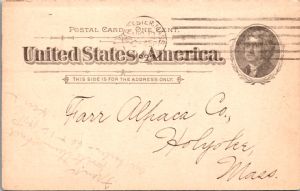 POSTAL CARD, ONE CENT.
United States of America.
THIS SIDE IS FOR THE ADDRESS ONLY.
Farr Alpaca Co.,
Holyoke,
Mass.